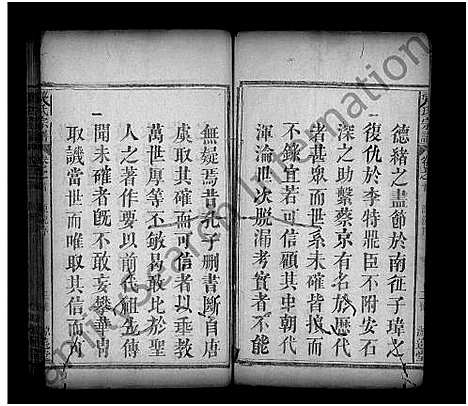 德緒之盡節於南征子瑋之
復仇於李特鼎臣不附安石
深之助繫蔡京有名於歷代
者甚衆而世系未確皆撥而
不錄宜若可信顧其中朝代
渾淪世次脱漏考實者不能
無疑焉昔孔子删書斷自唐
虞取其確而可信以垂教
萬世厚等不敏易敢比於聖
人之作要以前代祖先傳
聞未確者旣不敢妄攀華胄
取譏當世而唯取其信而可